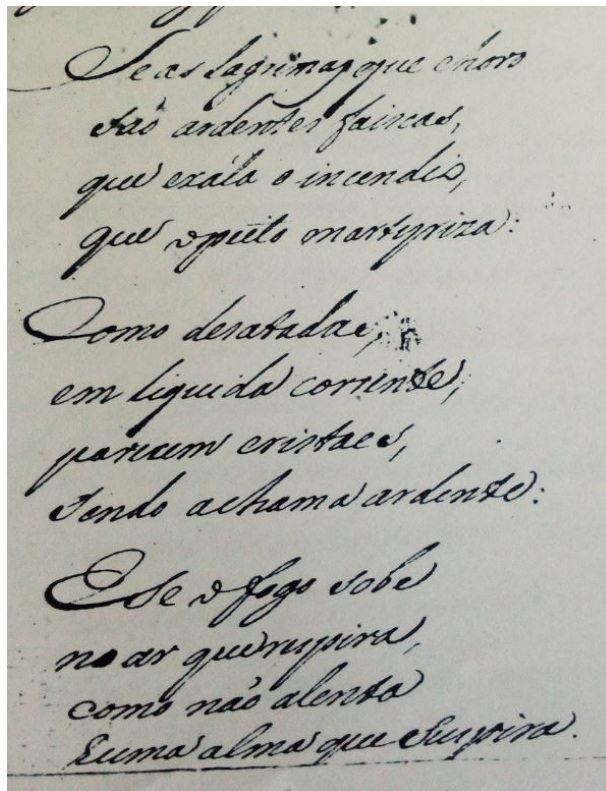 Se as lagrimas que choro
São ardentes faiscas,
que exála o incendio,
que o peito martyriza:
Como desatadas,
em liquida corrente,
parecem cristaes,
Sendo a chama ardente:
E se o fogo sobe
no ar que respira,
como não alenta
E uma alma que Suspira.